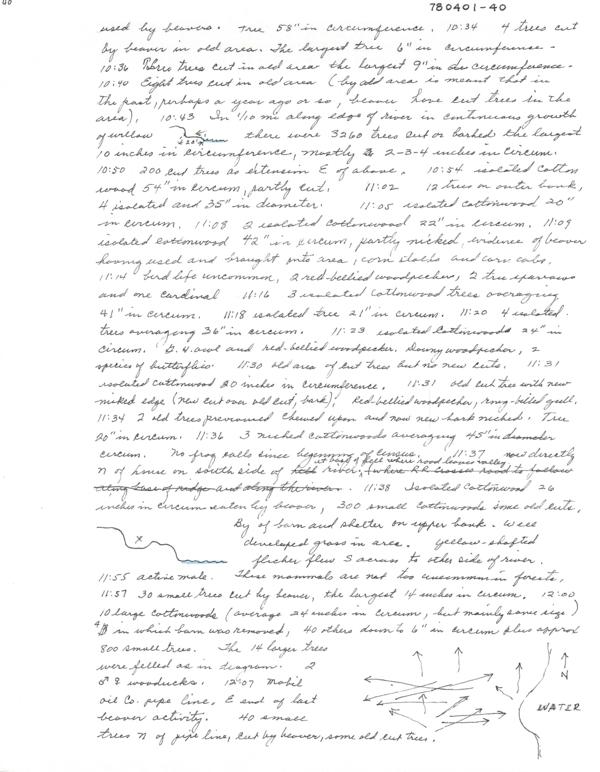 780401-40
used by beavers. Tree 58" in circumference. 10:34 4 trees cut
by beaver in old area. The largest tree 6" in circumference.
10:36 trees cut in old area the largest 9" in circumference.
10:40 Eight trees cut in old area (by old area is meant that in
the past, perhaps a year ago or so, beaver have cut trees in the
area). 10:43 In 1/10 mi along edge of river in continuous growth
of willow there were 3260 trees cut or barked the largest
10 inches in circumference, mostly 2-3-4 inches in circum.
10:50 200 cut trees as extension E of above. 10:54 isolated cotton
wood 54" in circum, partly cut. 11:02 12 trees on outer bank,
4 isolated and 35" in diameter. 11:05 isolated cottonwood 20"
in circum. 11:08 2 isolated cottonwood 22" in circum. 11:09
isolated cottonwood 42" in circum, partly nicked, evidence of beaver
having used and brought into area, corn stalks and corn cobs.
11:14 bird life uncommon, 2 red-bellied woodpeckers, 2 tree sparrows
and one cardinal 11:16 3 isolated cottonwood trees averaging
41" in circum. 11:18 isolated tree 21" in circum. 11:20 4 isolated
trees averaging 36" in circum. 11:23 isolated cottonwoods 24" in
circum. G.H. owl and red-bellied woodpecker. Downy woodpecker, 2
species of butterflies 11:30 old area of cut trees but no new cuts. 11:31
isolated cottonwood 20 inches in circumference. 11:31 old cut tree with new
nicked edge (new cut over old cut, bark). Red-bellied woodpecker, ring-billed gull.
11:34 2 old trees chewed upon and now new bark nicked. Tree
20" in circum. 11:36 3 nicked cottonwoods averaging 45" in diameter
circum. No frog calls since beginning of census. 11:37 now directly
at base of bluff where road leaves valley
N of house on south side of river, (where RR crosses road to follow
along base of ridge and along the river. 11:38 Isolated cottonwood 26
inches in circum eaten by beaver, 300 small cottonwoods some old cuts.
X
By of barn and shelter on upper bank. Well
developed grass in area. Yellow-shafted
flicker flew S across to other side of river.
11:55 active mole. These mammals are not too uncommon in forests.
11:57 30 small trees cut by beaver, the largest 14 inches in circum. 12:00
10 large cottonwoods (average 24 inches in circum, but mainly same size)
in which barn was removed, 40 others down to 6" in circum plus approx
800 small trees. The 14 larger trees
were felled as in diagram. 2
♂ ♀ woodducks. 12:07 Mobil
oil Co. pipe line, E end of last
beaver activity. 40 small
trees N of pipe line, cut by beaver, some old cut trees.
N
WATER